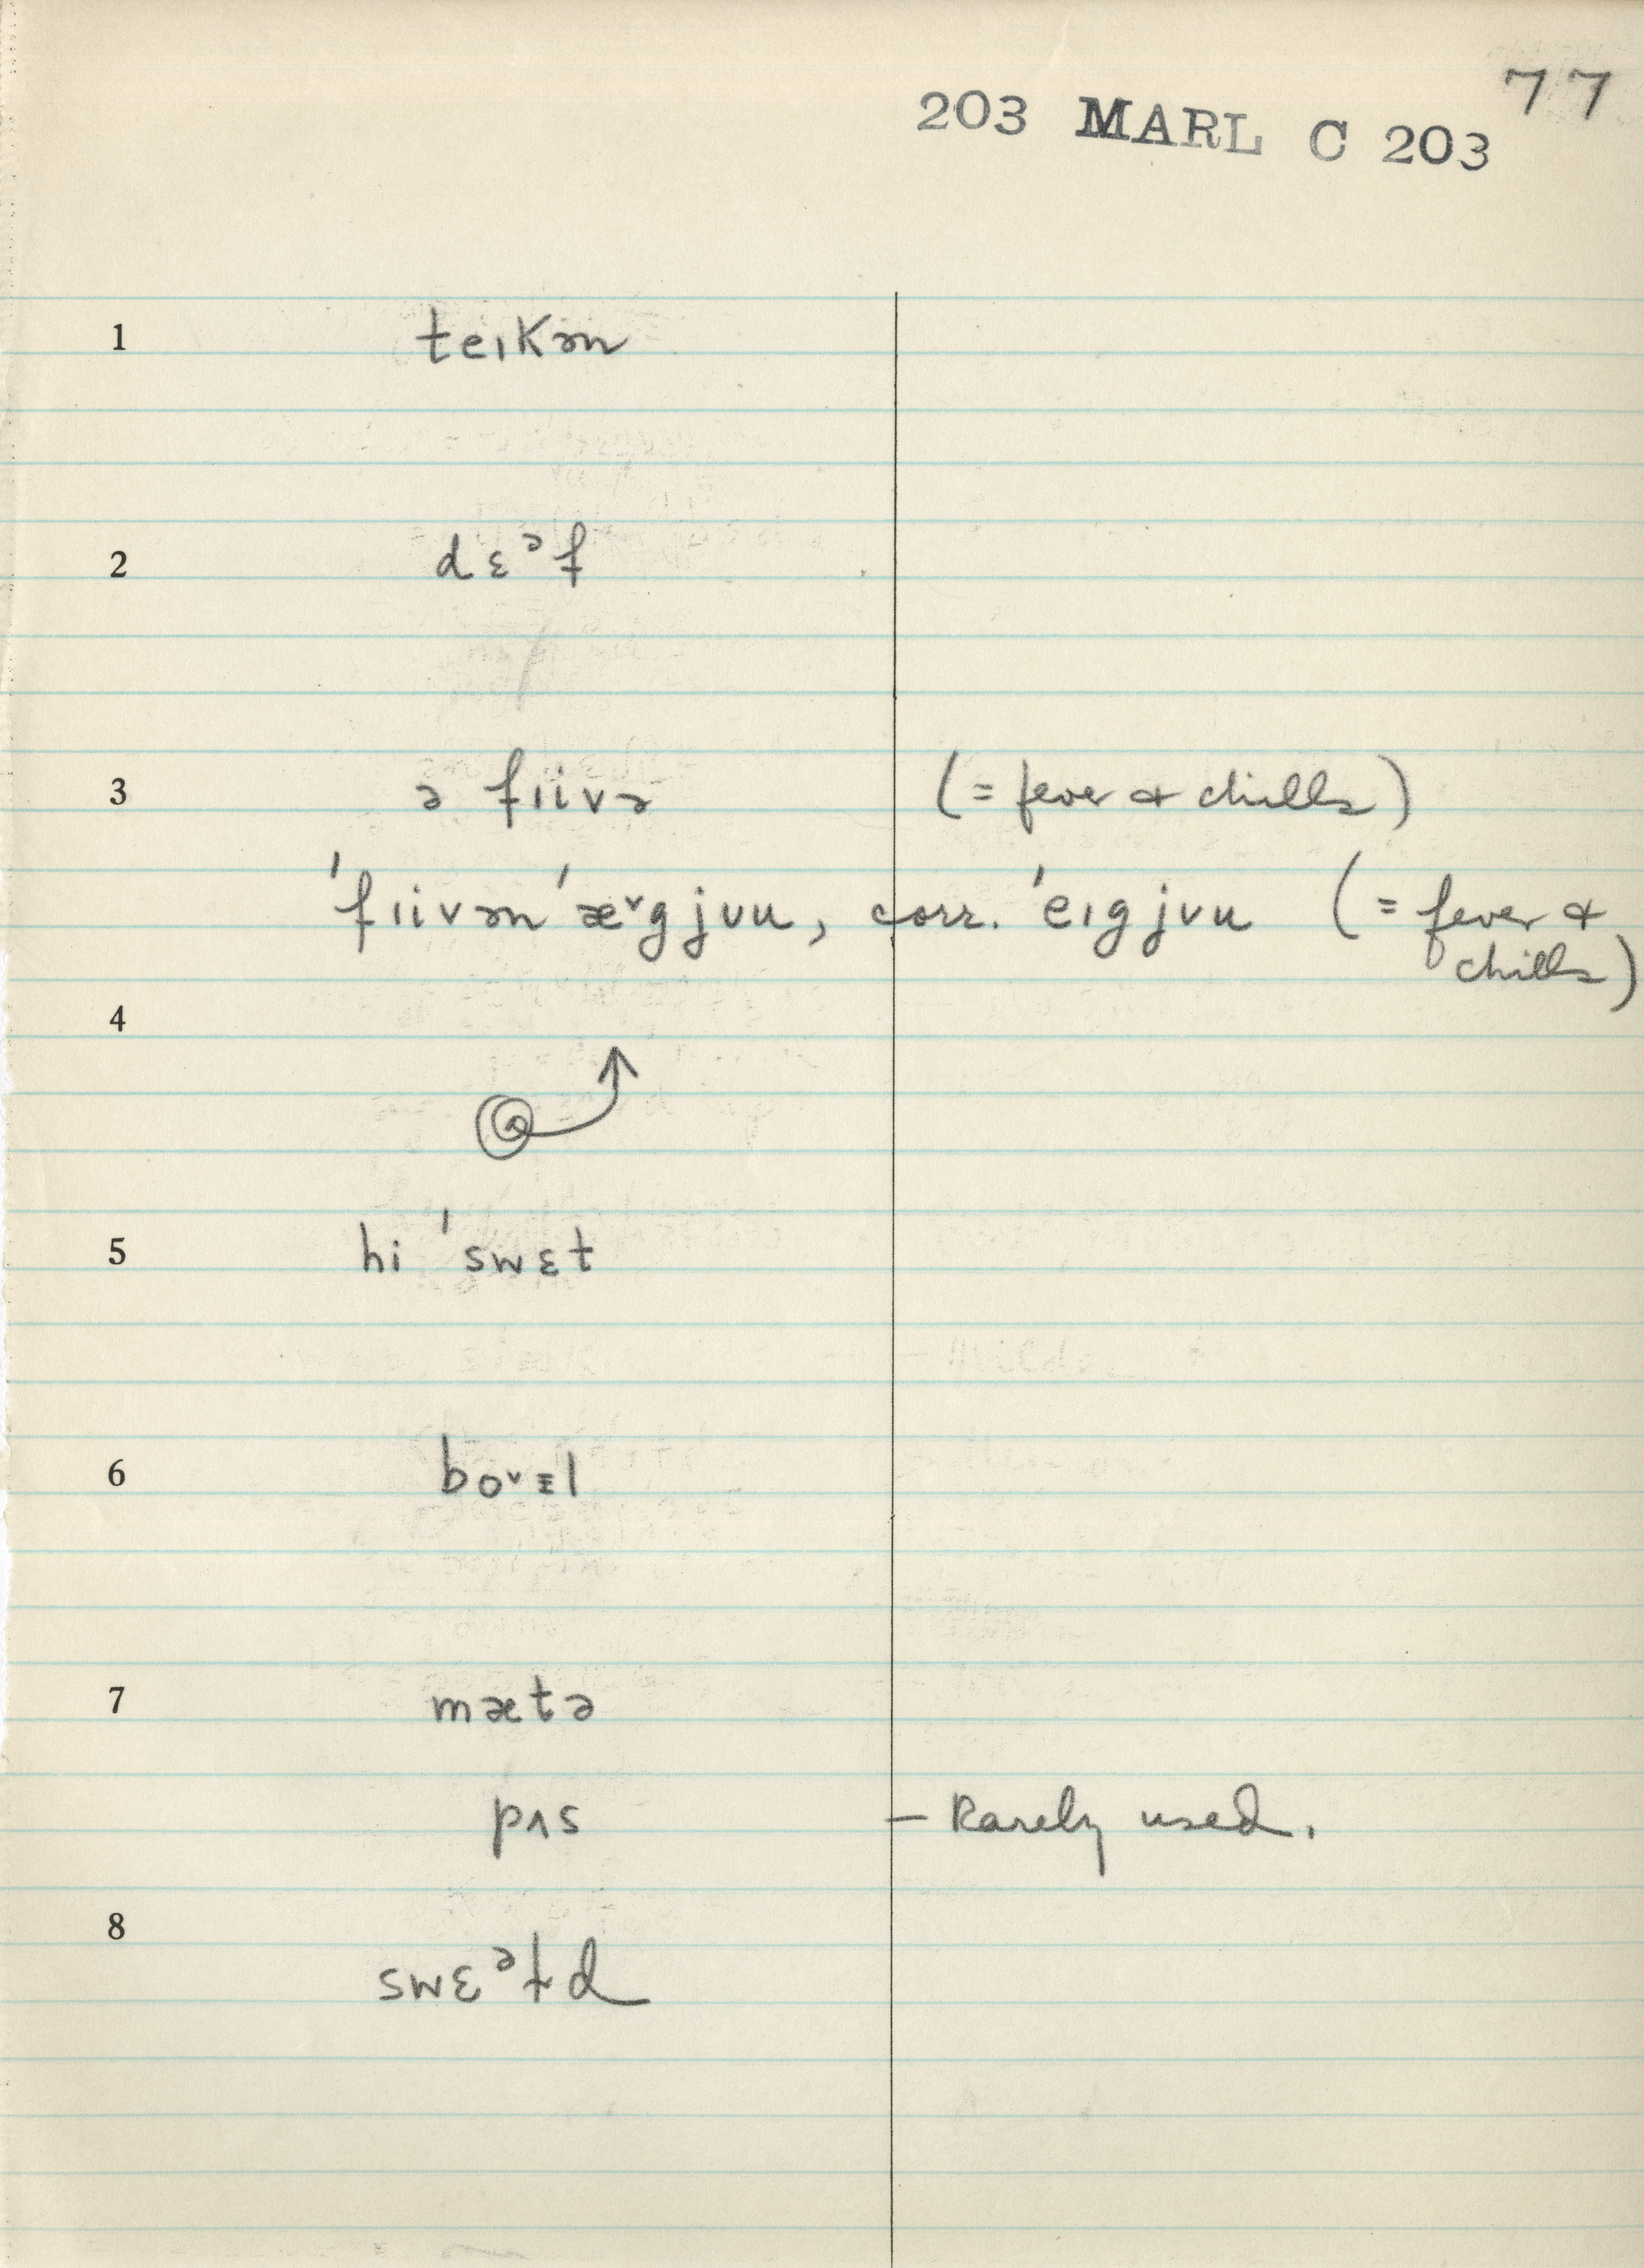 77
203 MARL C 203
1 teɪkən
2 dɛᵊf
3 ə fɪivə (= fever & chills)
ˈfɪivənˈæ˅gjʊu, corr. ˈeɪgjʊu (= fever &
chills)
4
5 hi ˈswɛt
6 bo˅ɪl
7 mætə
pʌs — Rarely used.
8